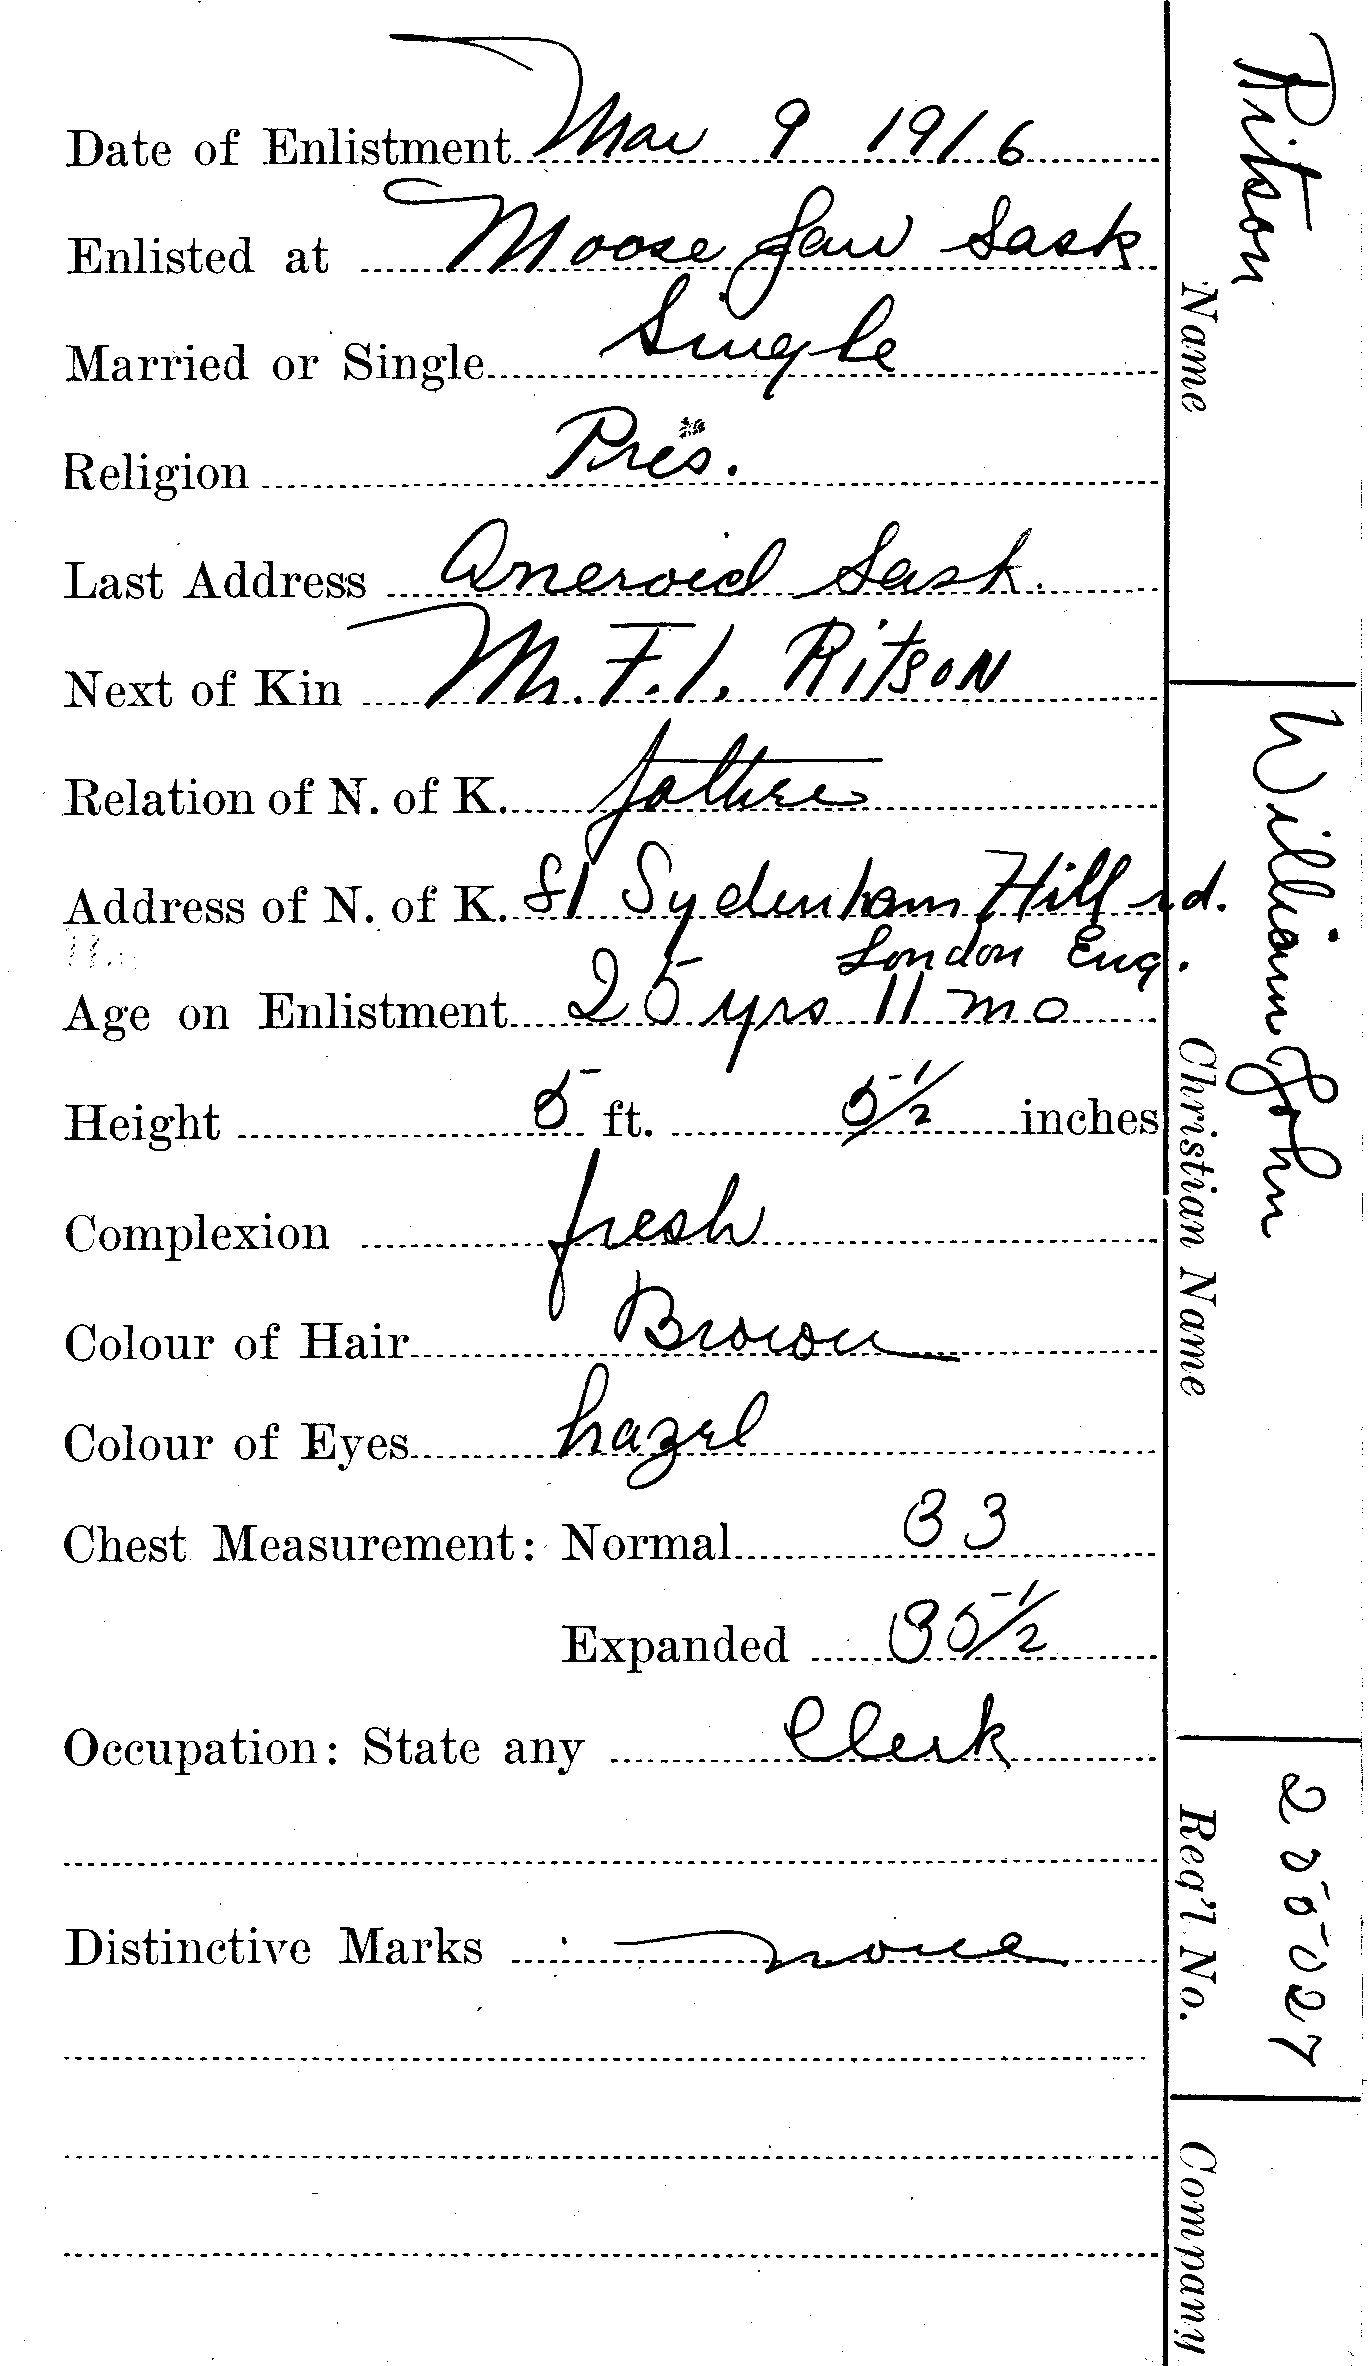 Date of Enlistment Mar 9 1916
Enlisted at Moose Jaw Sask
Married or Single Single
Religion Pres.
Last Address Aneroid Sask.
Next of Kin Mr. F. I. Ritson
Relation of N. of K. father
Address of N. of K. 81 Sydenham Hill rd.
London Eng.
Age on Enlistment 25 yrs 11 mo
Height 5 ft. 5 1/2 inches
Complexion fresh
Colour of Hair Brown
Colour of Eyes hazel
Chest Measurement: Normal 33
Expanded 35 1/2
Occupation: State any Clerk
Distinctive Marks none
Ritson
Name
William John
Christian Name
255027
Reg'l No.
Company